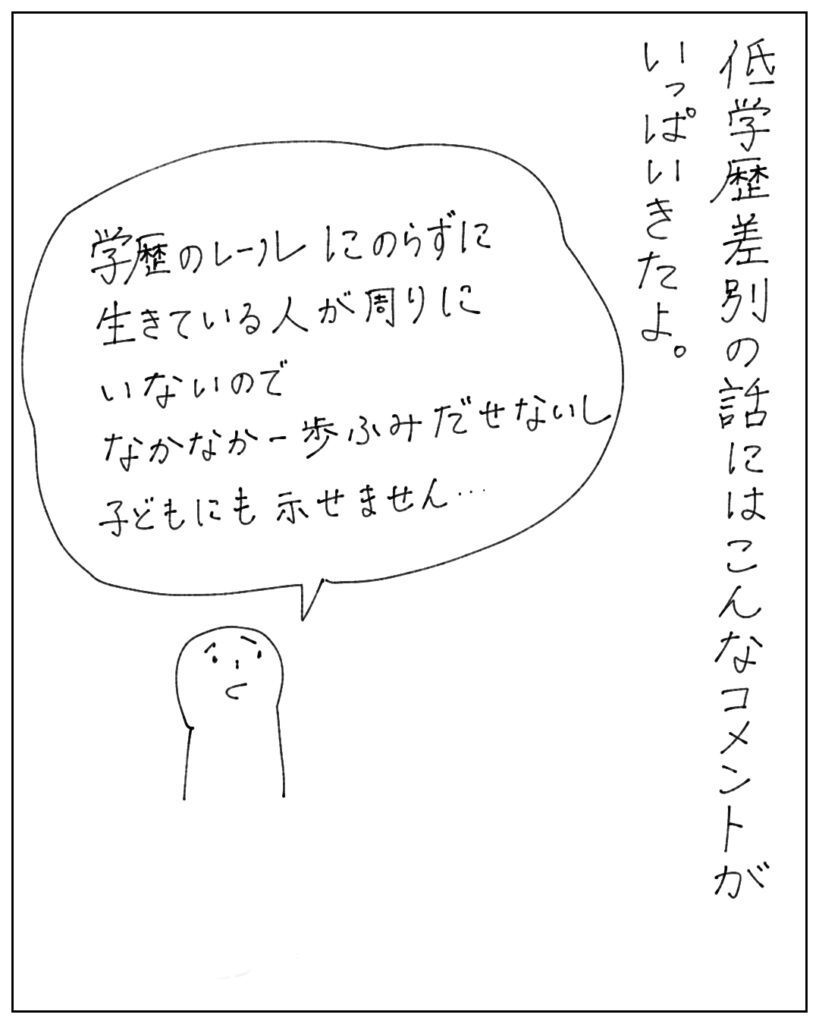 低学歴差別の話にはこんなコメントが
いっぱいきたよ。
学歴のレールにのらずに
生きている人が周りに
いないので
なかなか一歩ふみだせないし
子どもにも示せません…